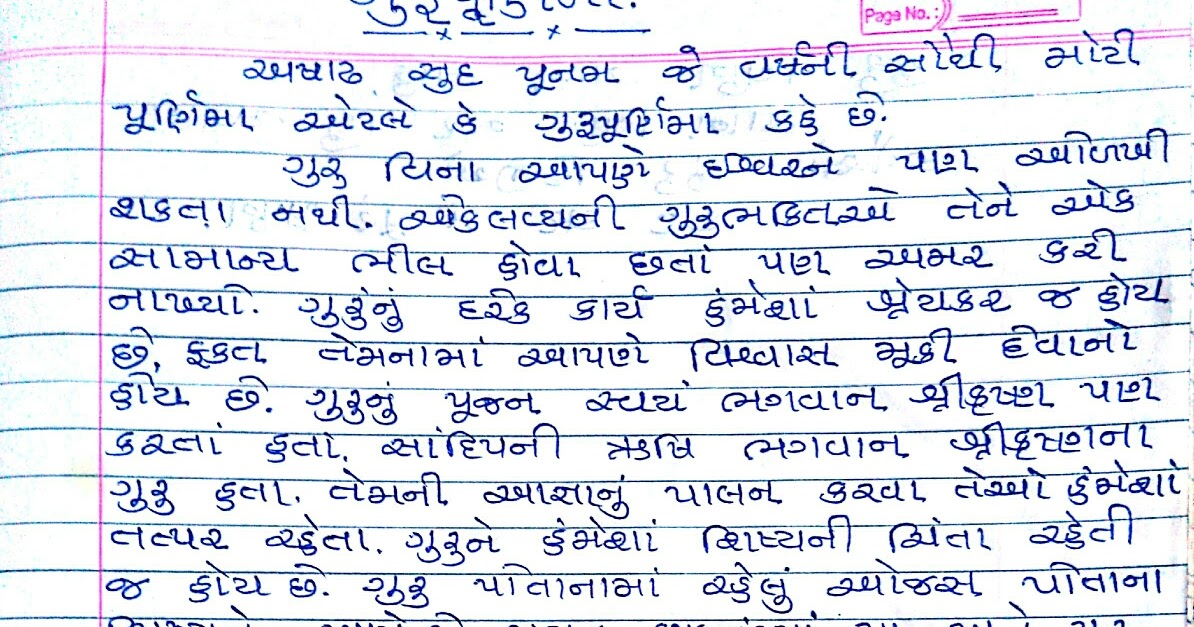 Page No. :
અષાઢ સુદ પૂનમ જે વર્ષની સૌથી મોટી
પૂર્ણિમા એટલે કે ગુરુપૂર્ણિમા કહે છે.
ગુરુ વિના આપણે ઈશ્વરને પણ ઓળખી
શકતા નથી. એકલવ્યની ગુરુભક્તિએ તેને એક
સામાન્ય ભીલ હોવા છતાં પણ અમર કરી
નાખ્યો. ગુરુનું દરેક કાર્ય હંમેશાં શ્રેયકર જ હોય
છે, ફક્ત તેમનામાં આપણે વિશ્વાસ મૂકી દેવાનો
હોય છે. ગુરુનું પૂજન સ્વયં ભગવાન શ્રીકૃષ્ણ પણ
કરતાં હતાં. સાંદિપની ઋષિ ભગવાન શ્રીકૃષ્ણના
ગુરુ હતા. તેમની આજ્ઞાનું પાલન કરવા તેઓ હંમેશાં
તત્પર રહેતા. ગુરુને હંમેશાં શિષ્યની ચિંતા રહેતી
જ હોય છે. ગુરુ પોતાનામાં રહેલું ઓજસ પોતાના